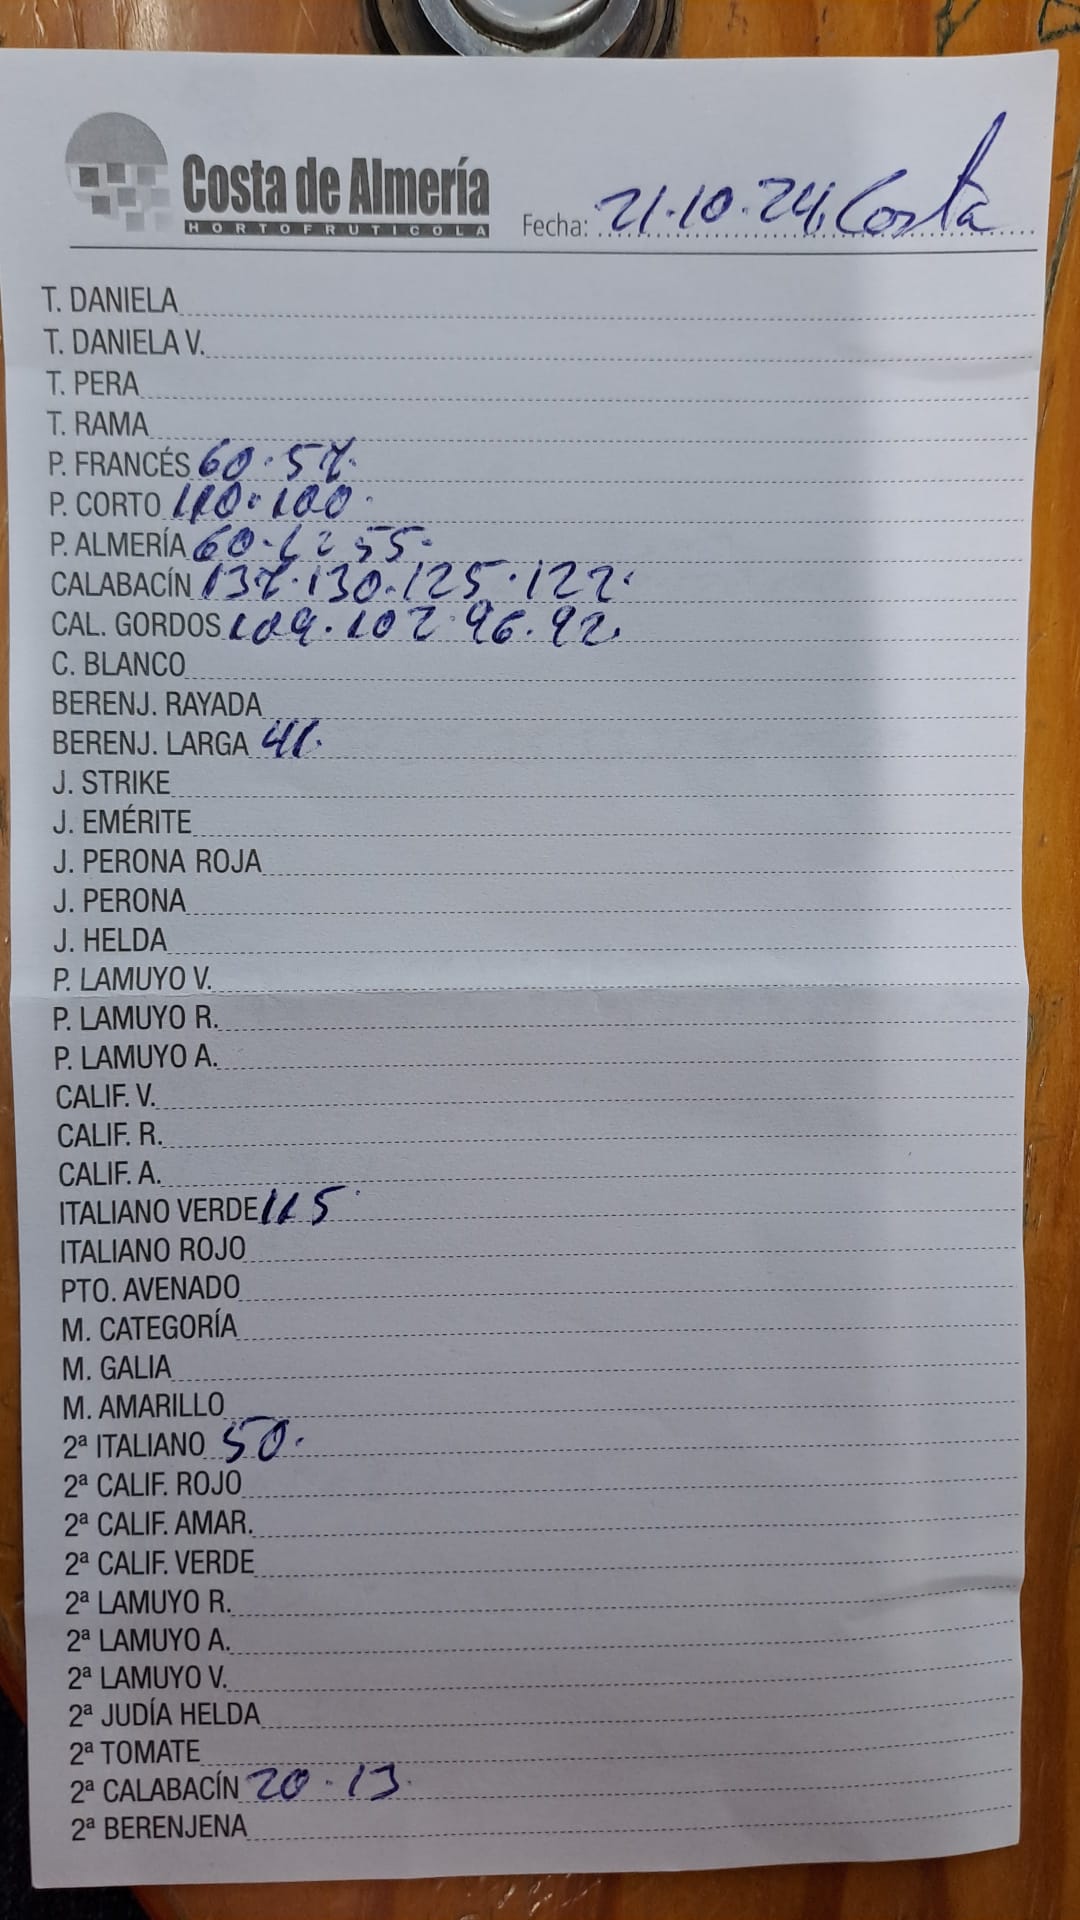 Costa de Almería
HORTOFRUTICOLA
Fecha: 21.10.24, Costa
T. DANIELA
T. DANIELA V.
T. PERA
T. RAMA
P. FRANCÉS 60.57.
P. CORTO 110.100.
P. ALMERÍA 60. 55.
CALABACÍN 137.130.125.122.
CAL. GORDOS 109.102.96.92.
C. BLANCO
BERENJ. RAYADA
BERENJ. LARGA 41.
J. STRIKE
J. EMÉRITE
J. PERONA ROJA
J. PERONA
J. HELDA
P. LAMUYO V.
P. LAMUYO R.
P. LAMUYO A.
CALIF. V.
CALIF. R.
CALIF. A.
ITALIANO VERDE 115
ITALIANO ROJO
PTO. AVENADO
M. CATEGORÍA
M. GALIA
M. AMARILLO
2ª ITALIANO 50.
2ª CALIF. ROJO
2ª CALIF. AMAR.
2ª CALIF. VERDE
2ª LAMUYO R.
2ª LAMUYO A.
2ª LAMUYO V.
2ª JUDÍA HELDA
2ª TOMATE
2ª CALABACÍN 20.13
2ª BERENJENA